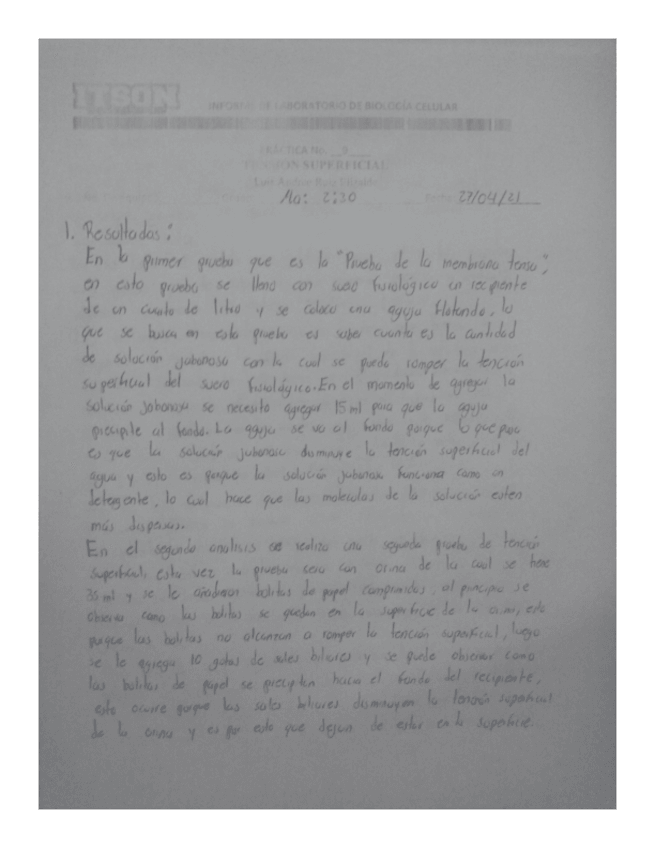 ITSON
INFORME DE LABORATORIO DE BIOLOGÍA CELULAR
PRÁCTICA No. 9
TENSIÓN SUPERFICIAL
Ma: 2:30 27/04/21
1. Resultados:
En la primer prueba que es la "Prueba de la membrana tensa",
en esta prueba se lleno con suero fisiológico un recipiente
de un cuarto de litro y se coloco una aguja flotando, lo
que se busca en esta prueba es saber cuanta es la cantidad
de solución jabonosa con la cual se puede romper la tención
superficial del suero fisiológico. En el momento de agregar la
solución jabonosa se necesito agregar 15 ml para que la aguja
precipite al fondo. La aguja se va al fondo porque lo que pasa
es que la solución jabonosa disminuye la tención superficial del
agua y esto es porque la solución jabonosa funciona como un
detergente, lo cual hace que las moleculas de la solución esten
más dispersas.
En el segundo analisis se realizo una segunda prueba de tención
superficial, esta vez la prueba sera con orina de la cual se tiene
30 ml y se le añadieron bolitas de papel comprimidas, al principio se
observa como las bolitas se quedan en la superficie de la orina, esto
porque las bolitas no alcanzan a romper la tención superficial, luego
se le agrega 10 gotas de sales biliares y se puede observar como
las bolitas de papel se precipitan hacia el fondo del recipiente,
esto ocurre porque las sales biliares disminuyen la tensión superficial
de la orina y es por esto que dejan de estar en la superficie.